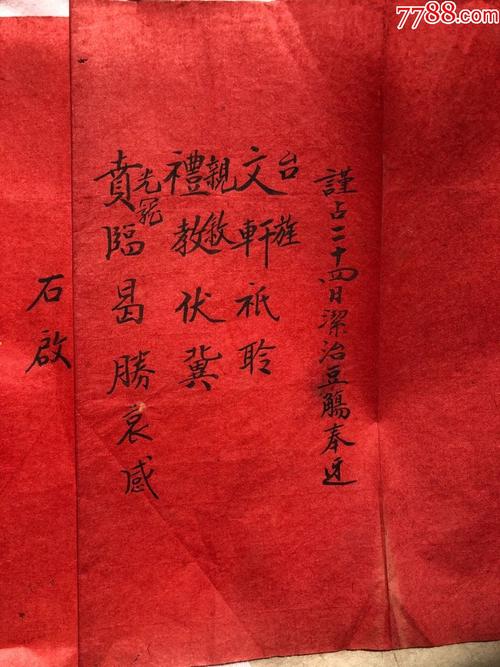 7788.com
謹占二十四日潔治豆觴奉迓
台旌
文軒祇聆
親敘
禮教伏冀
光寵
賁臨曷勝哀感
石啟